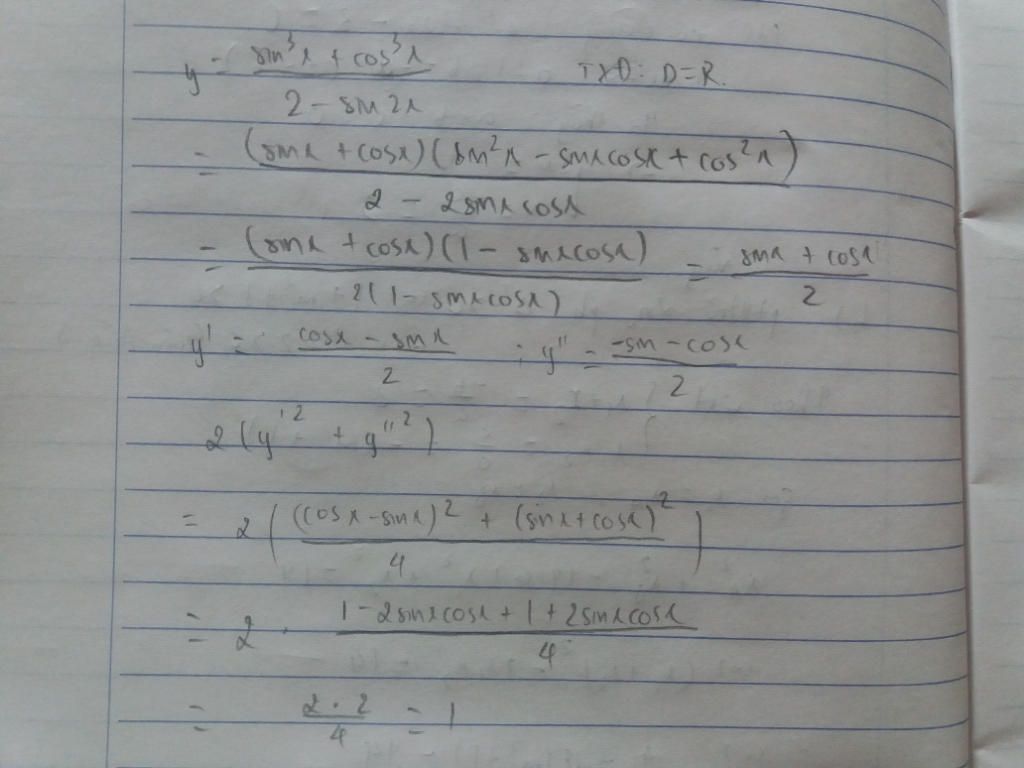 y = (sin³x + cos³x)/(2 - sin2x) TXĐ: D=R.
= (sinx + cosx)(sin²x - sinxcosx + cos²x)/(2 - 2sinxcosx)
= (sinx + cosx)(1 - sinxcosx)/(2(1 - sinxcosx)) = (sinx + cosx)/2
y' = (cosx - sinx)/2 ; y'' = (-sin - cosx)/2
2(y'² + y''²)
= 2(((cosx - sinx)² + (sinx + cosx)²)/4)
= 2 · (1 - 2sinxcosx + 1 + 2sinxcosx)/4
= (2 · 2)/4 = 1